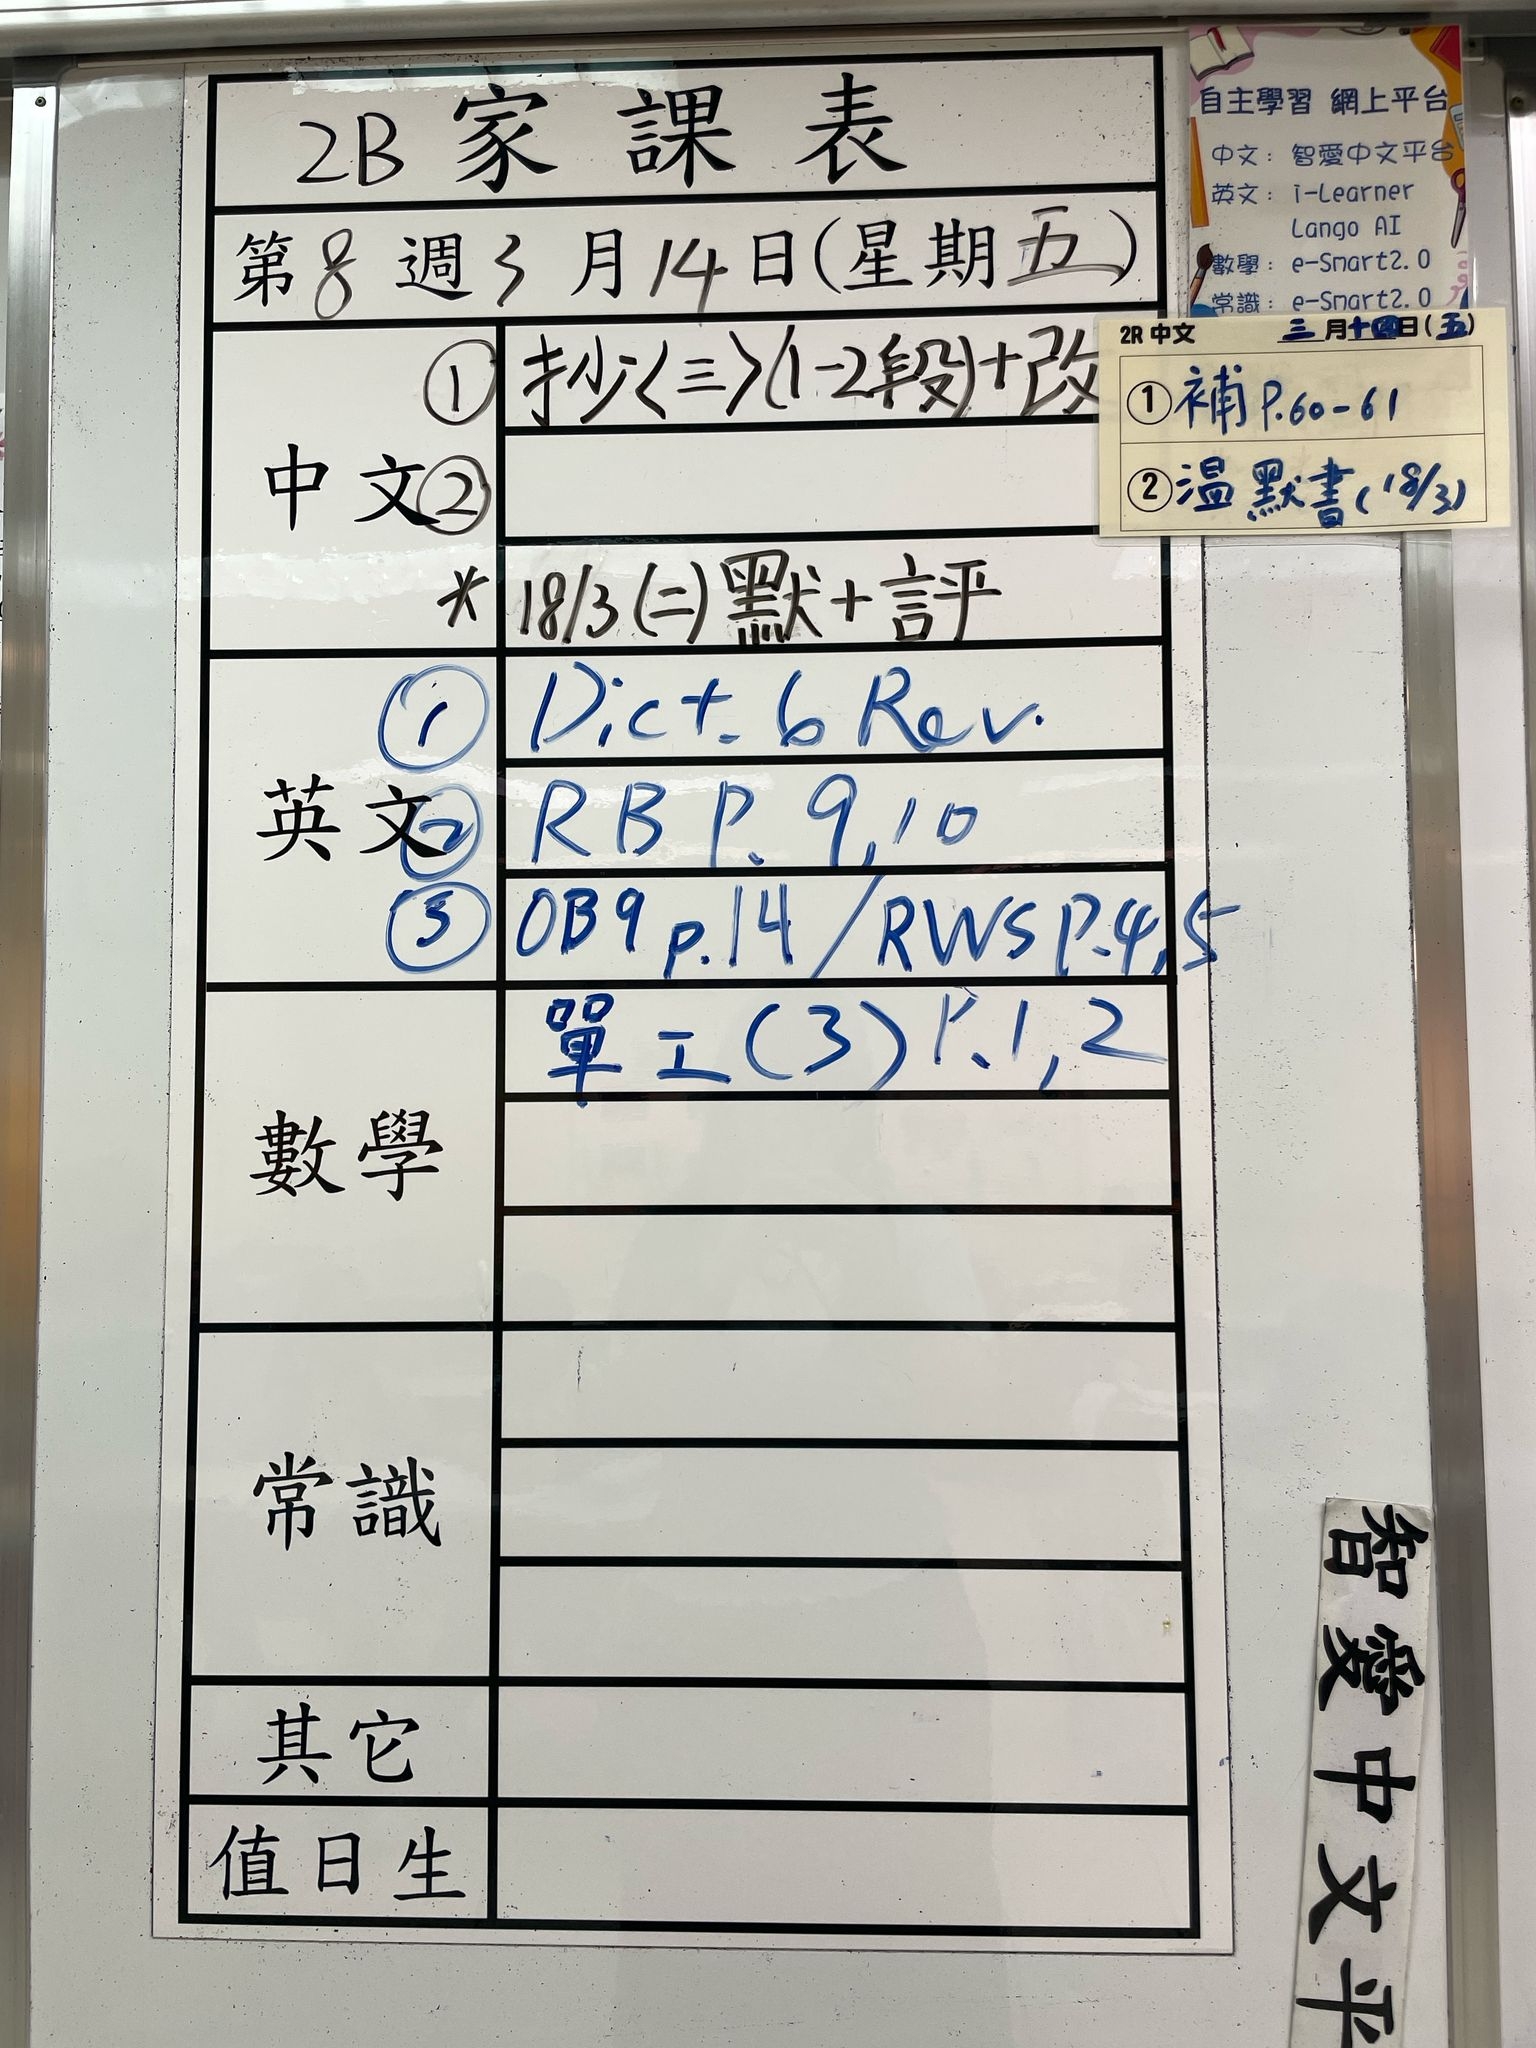 2B 家課表
第8週3月14日(星期五)
中文
① 抄〈三〉(1-2段)+改
②
* 18/3(二)默+評
英文
① Dict. 6 Rev.
② RB P. 9,10
③ OB9 p.14/RWS P.4,5
數學
單工(3) P.1,2
常識
其它
值日生
自主學習 網上平台
中文: 智愛中文平台
英文: i-Learner
Lango AI
數學: e-Smart2.0
常識: e-Smart2.0
2R 中文 三月十四日(五)
① 補 P.60-61
② 溫默書(18/3)
智愛中文平